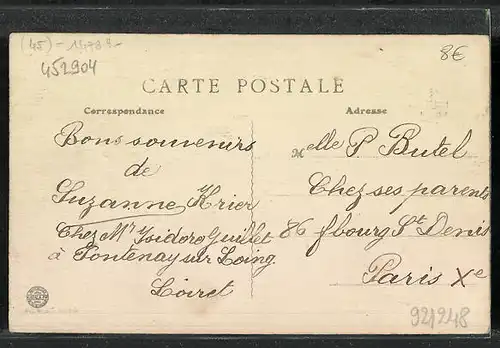 (45)-
452904
8€
CARTE POSTALE
Correspondance
Adresse
Bons souvenirs
de
Suzanne Krier
Chez Mr Isidore Guillet
à Fontenay sur Loing
Loiret
Melle P Butel
Chez ses parents
86 fbourg St Denis
Paris Xe
921248